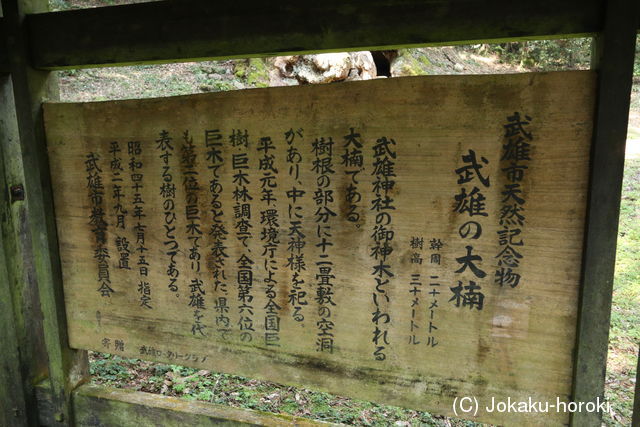 武雄市天然記念物
武雄の大楠
幹周 二十メートル
樹高 三十メートル
武雄神社の御神木といわれる
大楠である。
樹根の部分に十二畳敷の空洞
があり、中に天神様を祀る。
平成元年環境庁による全国巨
樹・巨木林調査で、全国第六位の
巨木であると発表された。県内で
も第二位の巨木であり、武雄を代
表する樹のひとつである。
昭和四十五年七月十五日 指定
平成二年九月 設置
武雄市教育委員会
寄贈 武雄ロータリークラブ
(C) Jokaku-horoki